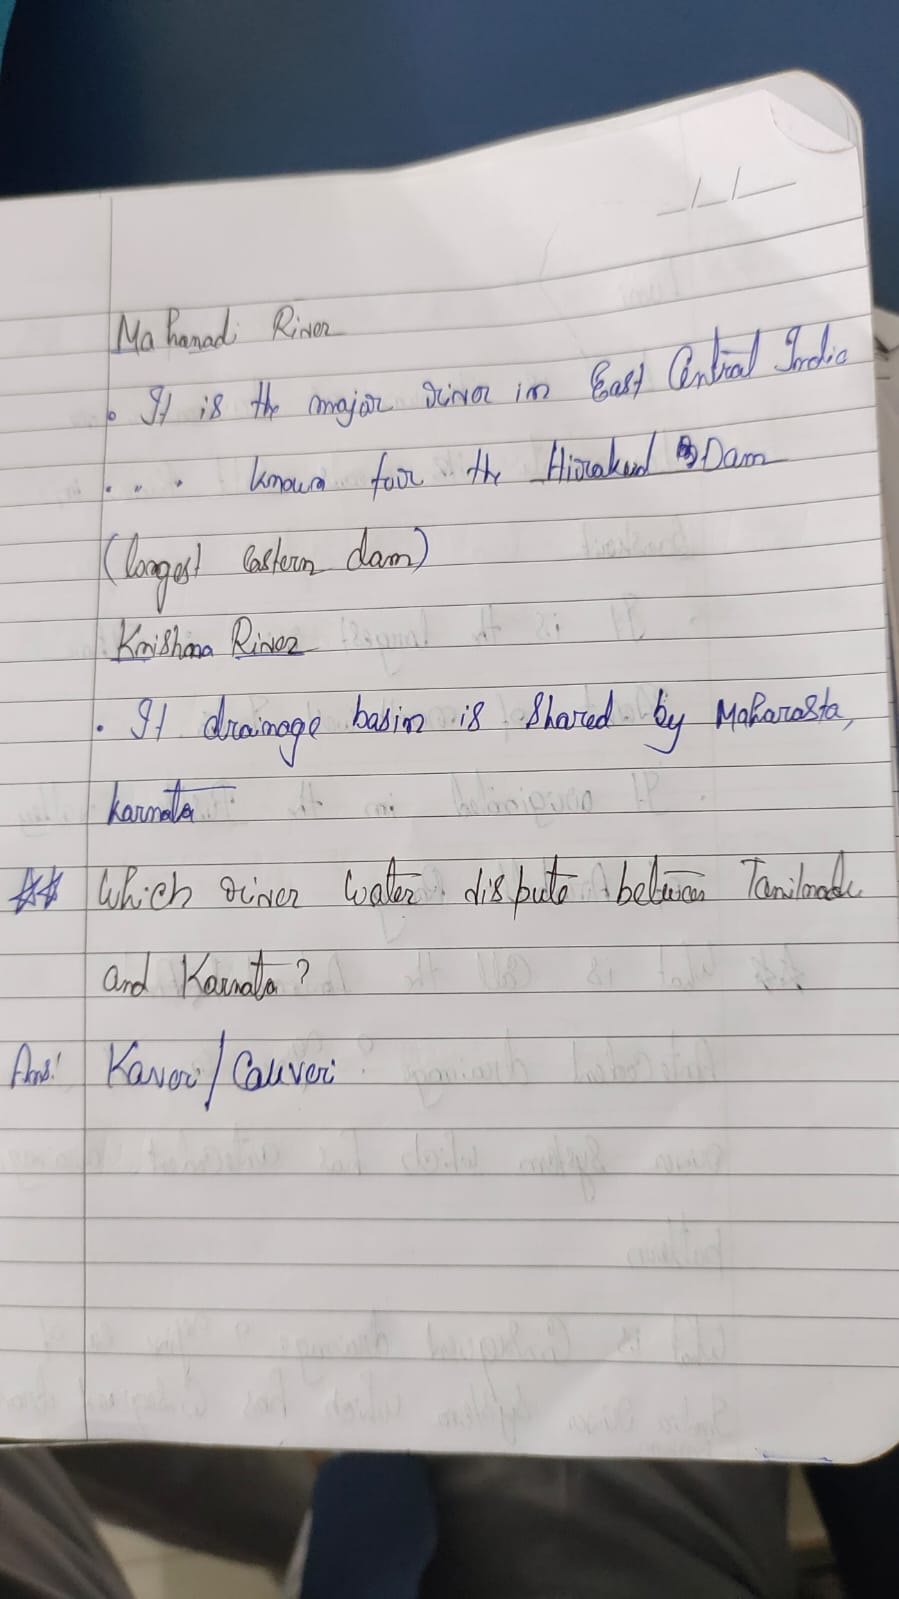 Mahanadi River
• It is the major river in East Central India
. . . known for the Hirakud Dam
(longest Eastern dam)
Krishna River
• It drainage basin is Shared by Maharasta,
karnata
** Which river water dispute between Tamilnadu
and Karnata?
Ans: Kaveri/Cauveri